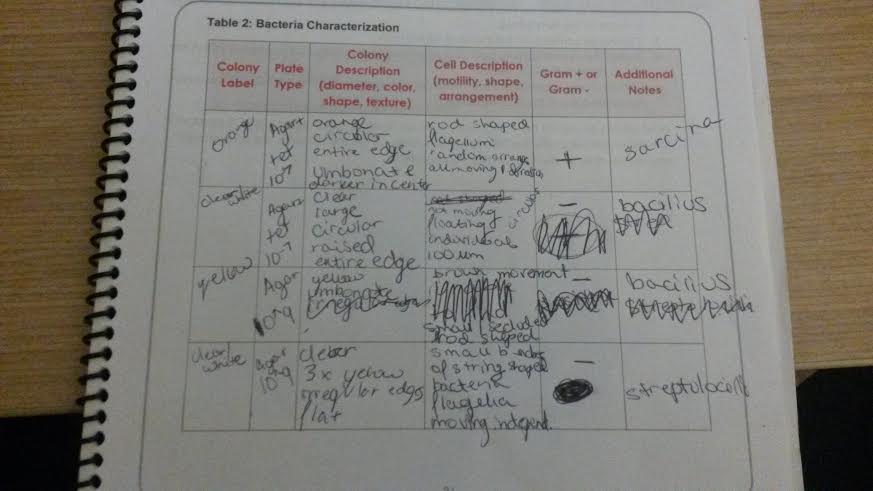 Table 2: Bacteria Characterization
Colony Label
Plate Type
Colony Description (diameter, color, shape, texture)
Cell Description (motility, shape, arrangement)
Gram + or Gram -
Additional Notes
orange
Agar+
tet
10-7
orange
circular
entire edge
umbonate
darker in center
rod shaped
flagellum
random arrange
all moving 1 direction
+
sarcina
clear/white
Agar+
tet
10-7
clear
large
circular
raised
entire edge
not moving
floating
individual
100 um
circular
-
bacilius
yellow
Agar
10-9
yellow
umbonate
irregular
brown movement
small secluded
rod shaped
-
bacilius
clear/white
Agar
10-9
3x yellow
irregular edges
flat
small
of string shaped
bacteria
flagelia
moving independ.
-